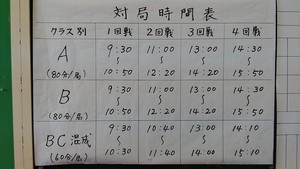 対局時間表
クラス別 1回戦 2回戦 3回戦 4回戦
A 9:30 11:00 13:00 14:30
〜 〜 〜 〜
(80分/局) 10:50 12:20 14:20 15:50
B 9:30 11:00 13:00 14:30
〜 〜 〜 〜
(80分/局) 10:50 12:20 14:20 15:50
BC混成 9:30 10:40 13:00 14:10
〜 〜 〜 〜
(60分/局) 10:30 11:40 14:00 15:10